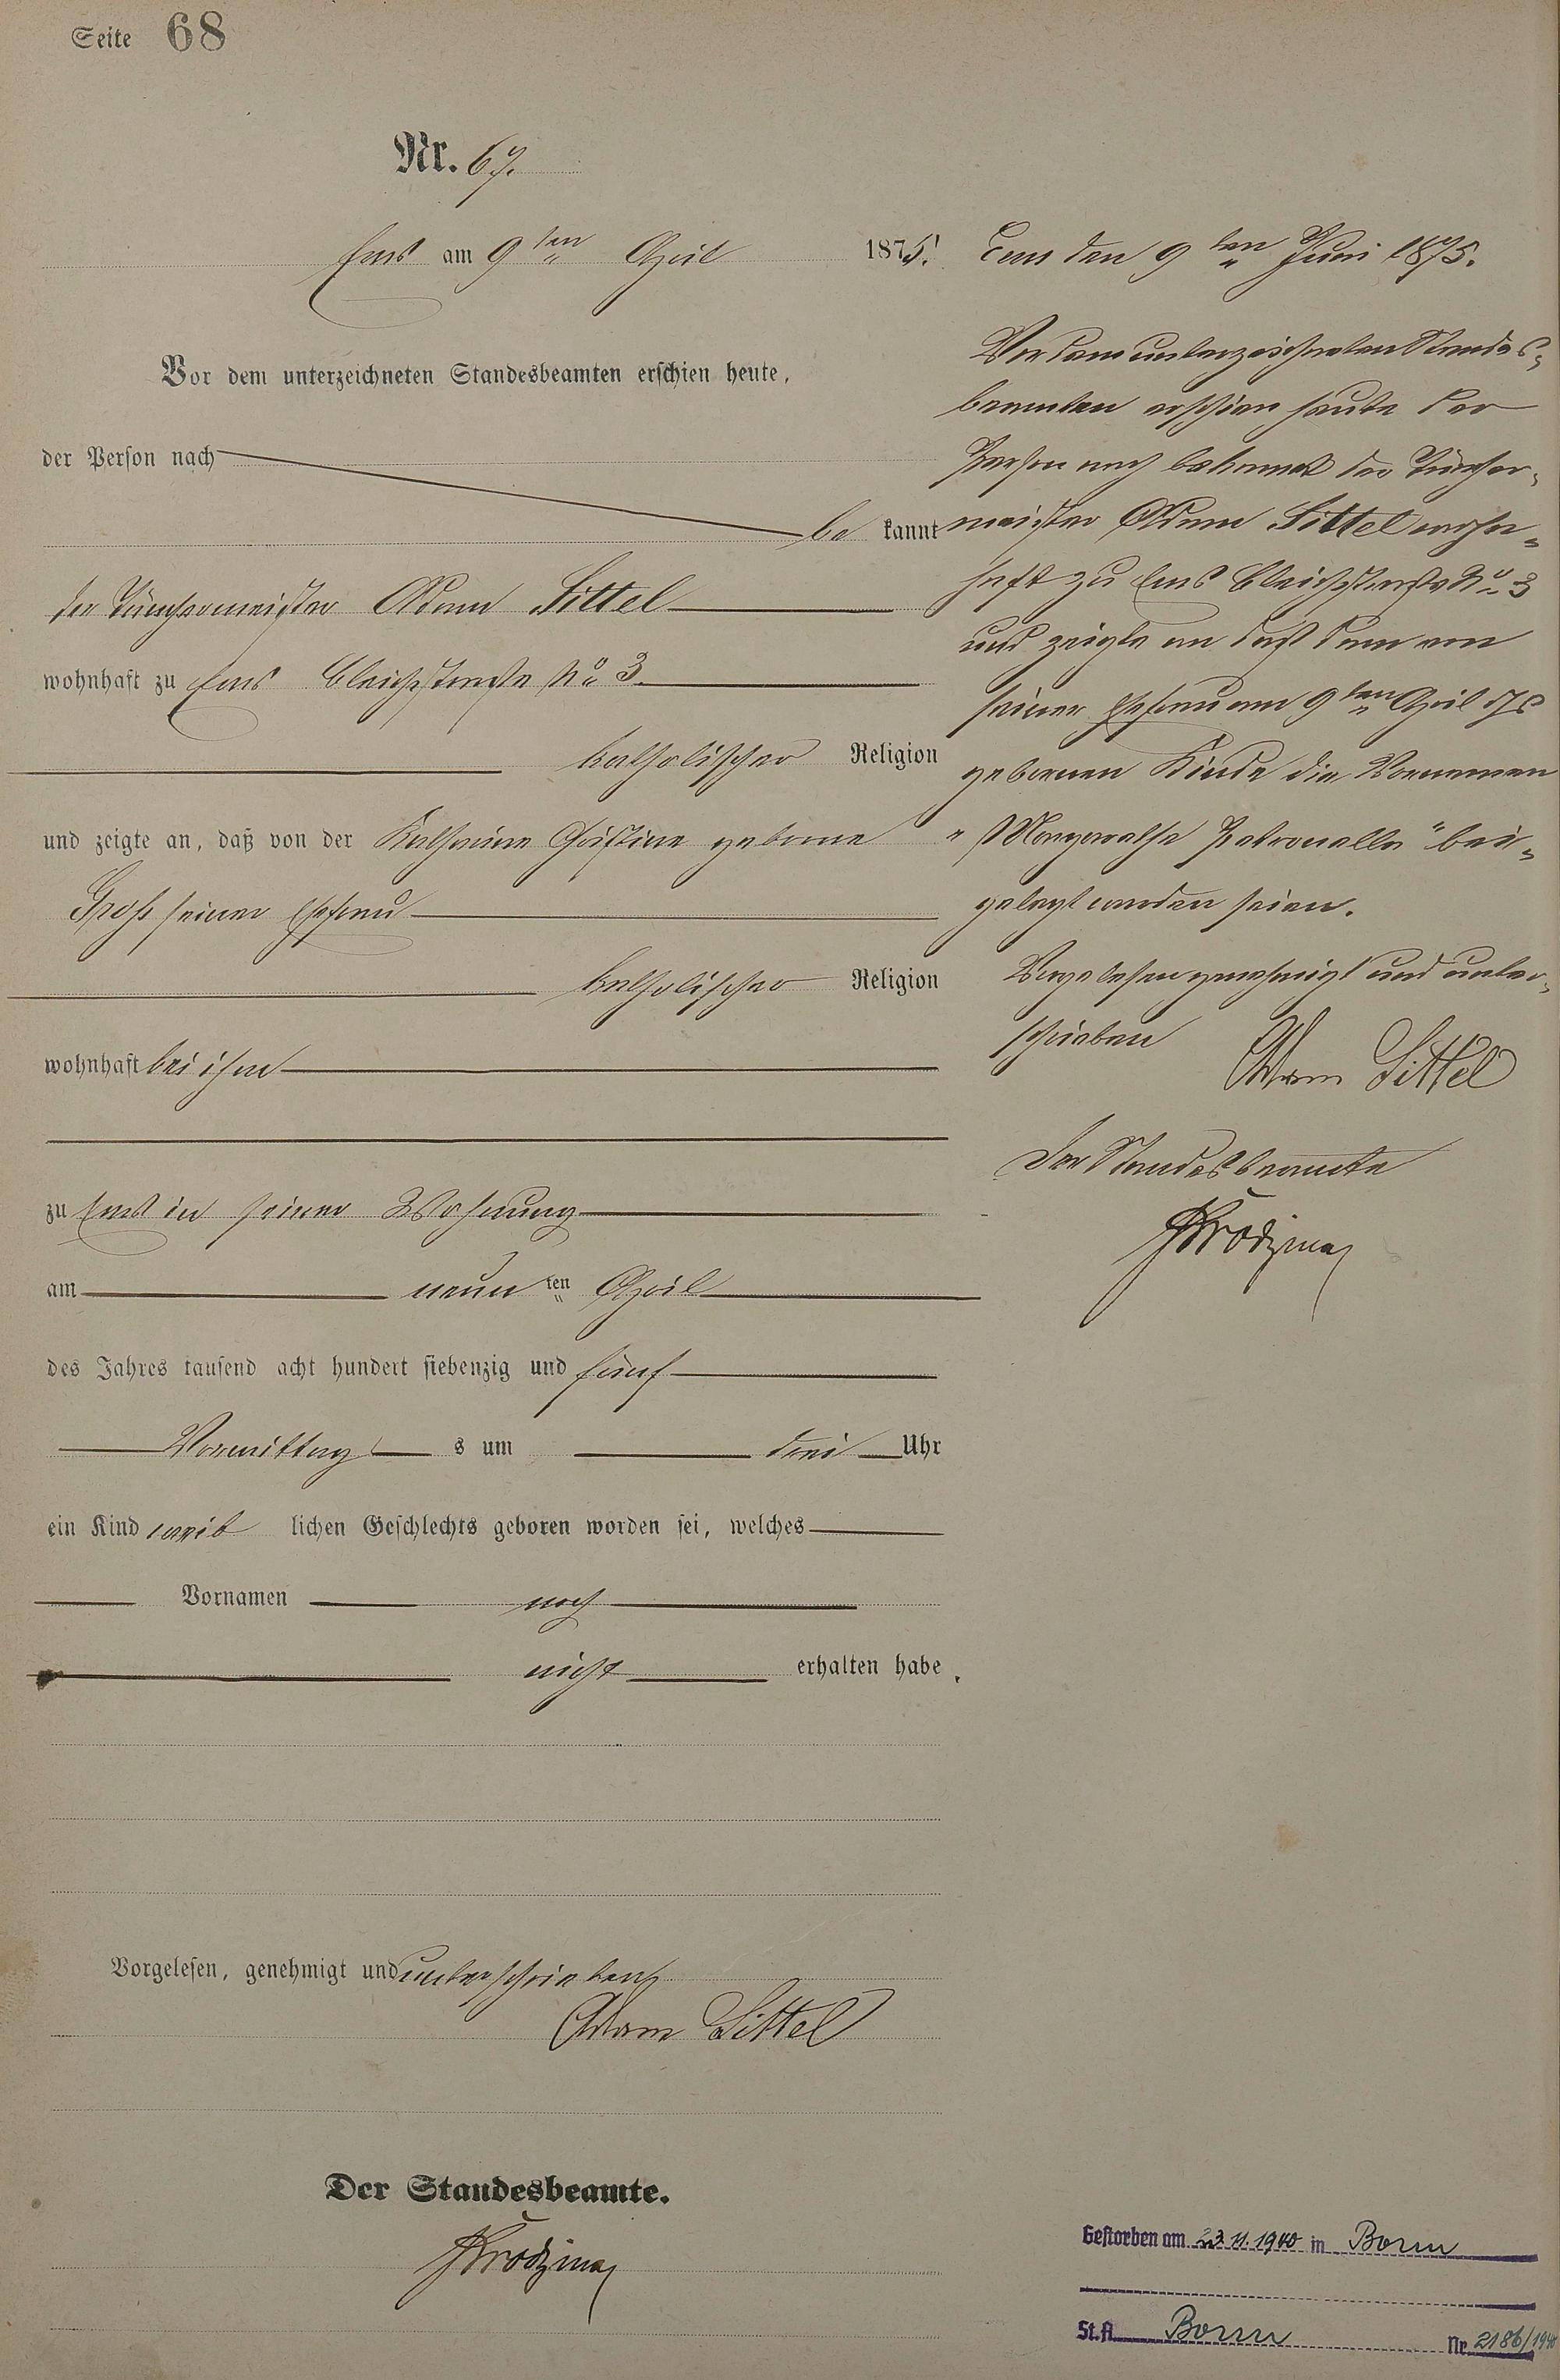 Seite 68
Nr. 67.
Ems am 9ten April 1875.
Vor dem unterzeichneten Standesbeamten erschien heute,
der Person nach
be kannt
der Tünchermeister Adam Sittel
wohnhaft zu Ems Bleichstraße No 3
katholischer Religion
und zeigte an, daß von der Katharine Christine geborne
Groß seiner Ehefrau
katholischer Religion
wohnhaft bei ihm
zu Ems in seiner Wohnung
am neun ten April
des Jahres tausend acht hundert siebenzig und fünf
Vormittag s um drei Uhr
ein Kind weib lichen Geschlechts geboren worden sei, welches
Vornamen noch
nicht erhalten habe.
Vorgelesen, genehmigt und unterschrieben
Adam Sittel
Der Standesbeamte.
Ems den 9ten Juni 1875.
Vor dem unterzeichneten Standes-
beamten erschien heute der
Person nach bekannt der Tüncher-
meister Adam Sittel wohn-
haft zu Ems Bleichstraße No 3
und zeigte an daß dem von
seiner Ehefrau am 9ten April d Js
gebornen Kinde die Vornamen
"Margarethe Petronella" bei-
gelegt worden seien.
Vorgelesen genehmigt und unter-
schrieben
Adam Sittel
Der Standesbeamte
Gestorben am 23.11.1940 in Bonn
St.A. Bonn Nr. 2186/1940